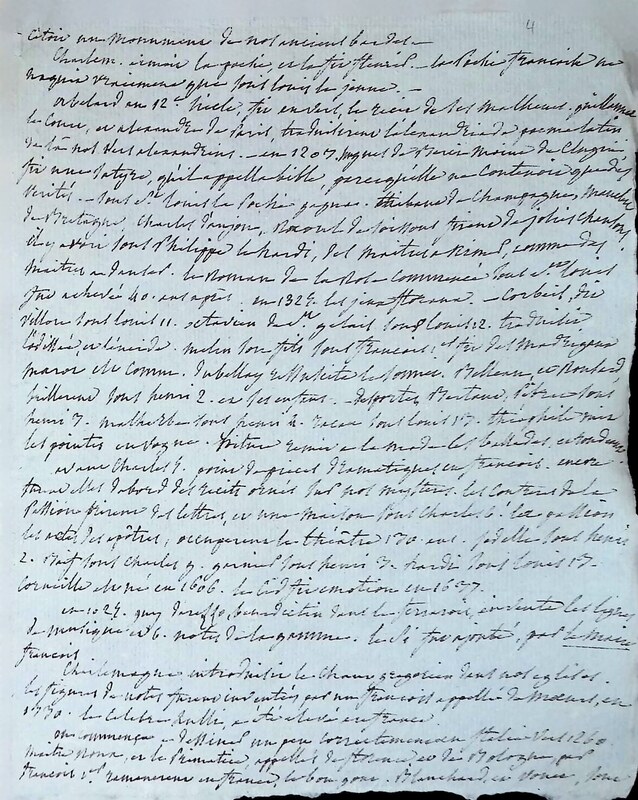 4
étoit un monument de nos anciens bardes —
Charlem. aimoit la poésie, et la fit fleurir. — la Poésie françoise ne
naquit vraiment que sous louis le jeune. —
abelard au 12e siecle, fit en vers, le recit de ses malheurs. guillaume
le Court, et alexandre de Paris, traduisirent l'alexandriade poeme latin
de là nos vers alexandrins. — en 1207. hugues de Bercy moine de Clugni
fit une satyre, qu'il appelle bible parcequ'elle ne Contenoit que des
verités. — sous st louis la Poésie gagna. thibaud de Champagne, 
de Bretagne, Charles d'anjou, Raoul de soissons firent de jolies Chansons
il y avoit sous Philippe le hardi, des maitres à Rimes, comme des
maitres à danser. le Roman de la Rose commencé sous st louis
fut achevé 40. ans après. en 1324. les jeux floraux. — Corbeil, dit
villon sous louis 11. octavien de st gelais sous louis 12. traduisit
l'odissée, et l'énéide. melin son fils sous francois 1er fit des madrigaux
marot est connu. du bellay ressuscite le sonnet. Belleau, et Ronsard
brillerent sous henri 2. et ses enfans. — desportes, Bertaut, sous
henri 3. malherbe sous henri 4. racan sous louis 13. théophile mit
les pointes en vogue. voiture remit à la mode les ballades, et rondeaux
avant Charles 5. point de pieces dramatiques en francois. encore
furent elles d'abord des recits ornés sur nos mysteres. les Confreres de la
Passion eurent des lettres, et une maison sous Charles 6. les passions
les actes des apôtres, occuperent le théâtre 150. ans. jodelle sous henri
2. Baif sous Charles 9. garnier sous henri 3. hardi sous louis 13.
Corneille est né en 1606. le Cid fit emotion en 1637.
en 1024. guy d'arezzo, benedictin dans le ferrarois, inventa les lignes
de musique et 6. notes de la gamme. le si fut ajouté, par le maire
francois
Charlemagne introduisit le Chant gregorien dans nos eglises.
les figures de notes furent inventées par un francois appellé de meurs, en
1330. le Celebre Lulli, a été elevé en france.
on commença à dessiner un peu correctement en Italie vers 1260
maitre Roux, et le Primatice, appellés de florence et de Bologne, par
francois 1er ramenerent en france, le bon gout. Blanchard, et vouet, sous